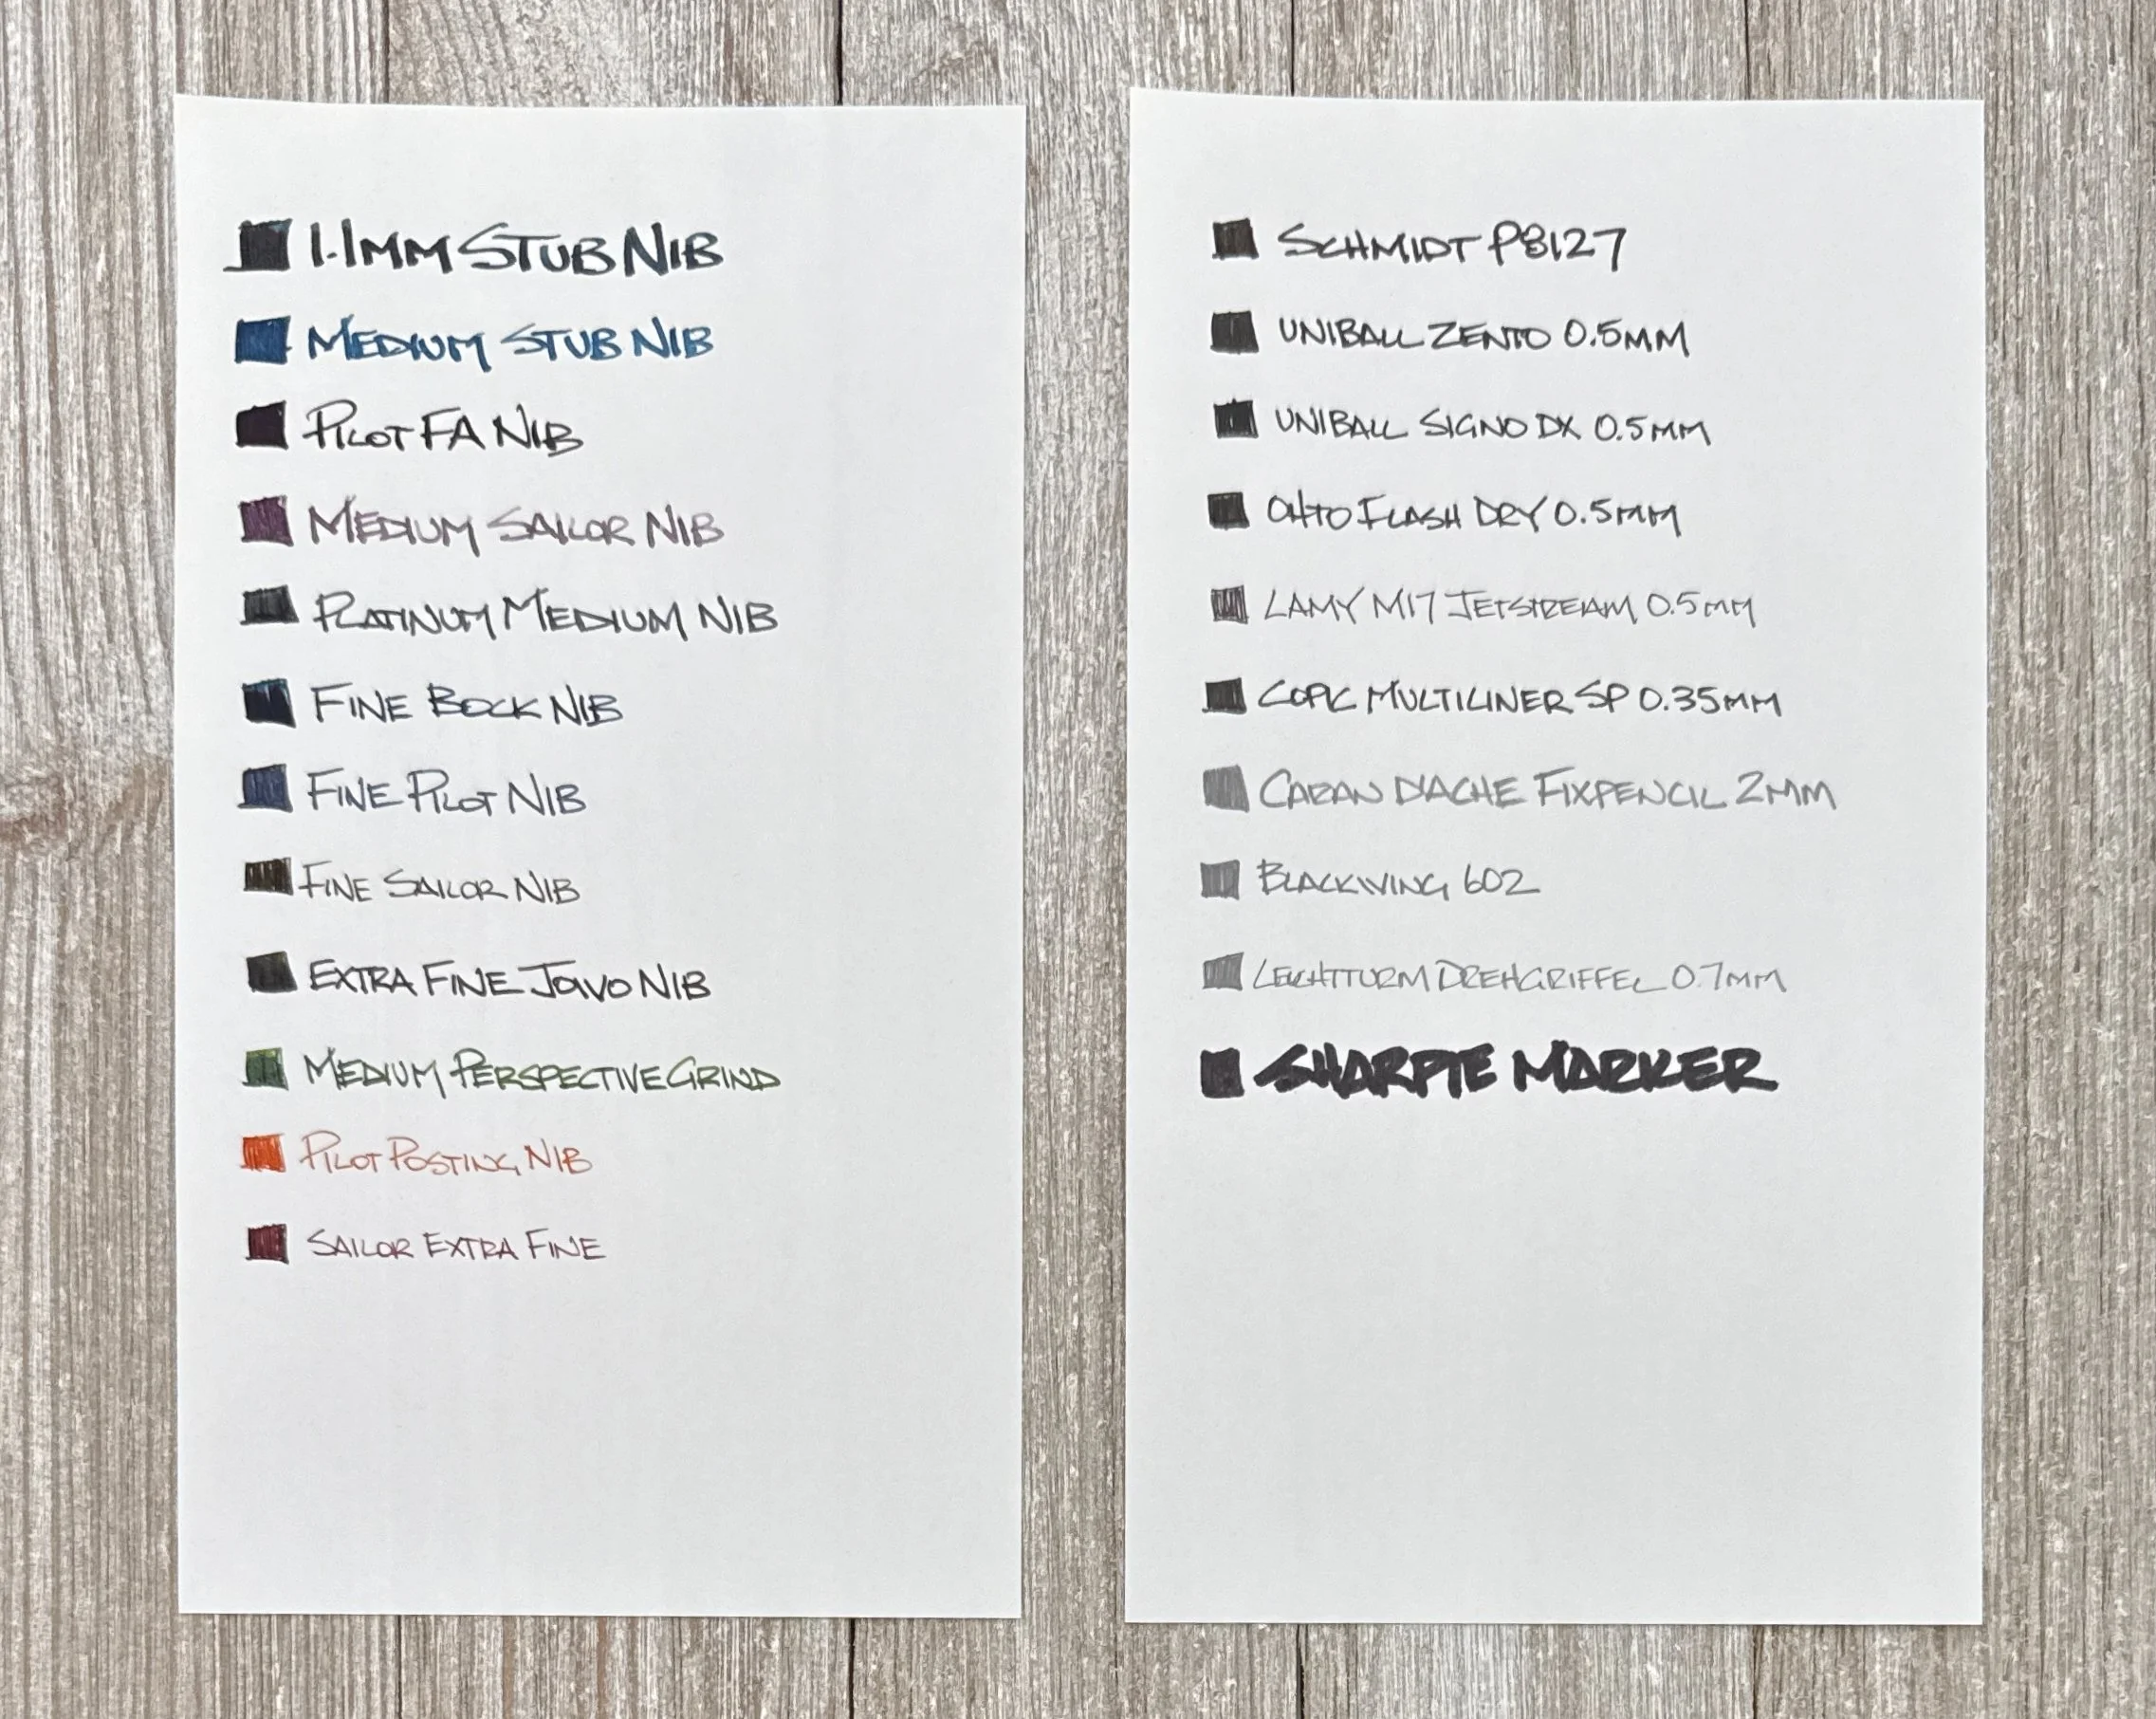 1.1MM STUB NIB
MEDIUM STUB NIB
PILOT FA NIB
MEDIUM SAILOR NIB
PLATINUM MEDIUM NIB
FINE BOCK NIB
FINE PILOT NIB
FINE SAILOR NIB
EXTRA FINE JOWO NIB
MEDIUM PERSPECTIVE GRIND
PILOT POSTING NIB
SAILOR EXTRA FINE
SCHMIDT P8127
UNIBALL ZENTO 0.5MM
UNIBALL SIGNO DX 0.5MM
OHTO FLASH DRY 0.5MM
LAMY M17 JETSTREAM 0.5MM
COPIC MULTILINER SP 0.35MM
CARAN D'ACHE FIXPENCIL 2MM
BLACKWING 602
LEUCHTTURM DREHGRIFFEL 0.7MM
SHARPIE MARKER